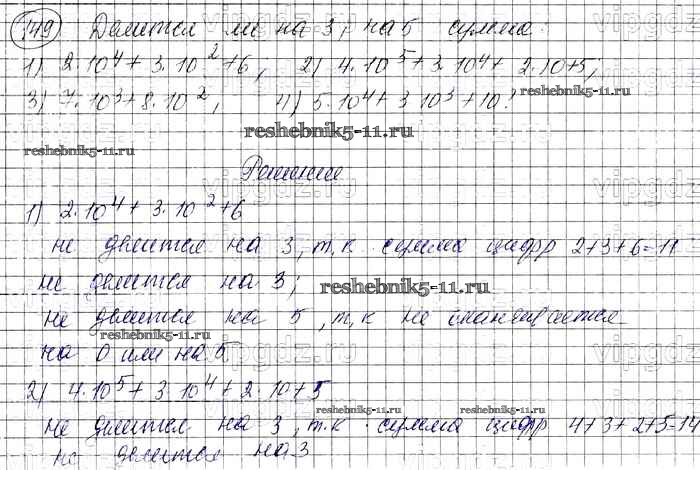 149 Делится ли на 3; на 5 сумма:
1) 2·10⁴ + 3·10² + 6, 2) 4·10⁵ + 3·10⁴ + 2·10 + 5;
3) 7·10³ + 8·10², 4) 5·10⁴ + 3·10³ + 10?
reshebnik5-11.ru
reshebnik5-11.ru
reshebnik5-11.ru
Решение
1) 2·10⁴ + 3·10² + 6
не делится на 3, т.к сумма цифр 2+3+6=11
не делится на 3;
reshebnik5-11.ru
не делится на 5, т.к не оканчивается
reshebnik5-11.ru
на 0 или на 5
vipgdz.ru
2) 4·10⁵ + 3·10⁴ + 2·10 + 5
reshebnik5-11.ru reshebnik5-11.ru
не делится на 3, т.к сумма цифр 4+3+2+5=14
не делится на 3